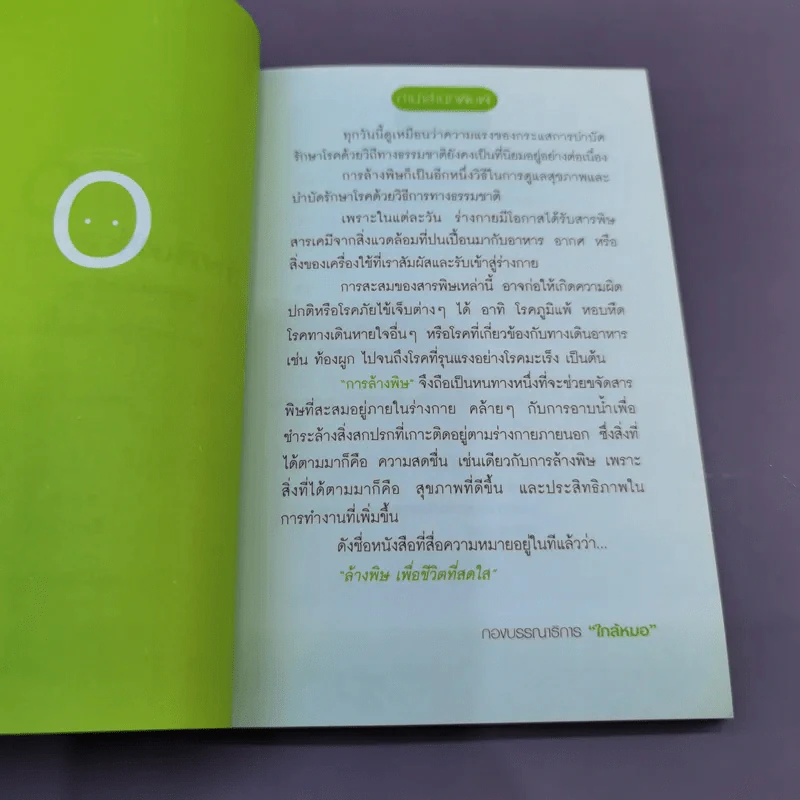 ทุกวันนี้ดูเหมือนว่าความแรงของกระแสการบำบัด
รักษาโรคด้วยวิถีทางธรรมชาติยังคงเป็นที่นิยมอยู่อย่างต่อเนื่อง
การล้างพิษก็เป็นอีกหนึ่งวิธีในการดูแลสุขภาพและ
บำบัดรักษาโรคด้วยวิธีการทางธรรมชาติ
เพราะในแต่ละวัน ร่างกายมีโอกาสได้รับสารพิษ
สารเคมีจากสิ่งแวดล้อมที่ปนเปื้อนมากับอาหาร อากาศ หรือ
สิ่งของเครื่องใช้ที่เราสัมผัสและรับเข้าสู่ร่างกาย
การสะสมของสารพิษเหล่านี้ อาจก่อให้เกิดความผิด
ปกติหรือโรคภัยไข้เจ็บต่างๆ ได้ อาทิ โรคภูมิแพ้ หอบหืด
โรคทางเดินหายใจอื่นๆ หรือโรคที่เกี่ยวข้องกับทางเดินอาหาร
เช่น ท้องผูก ไปจนถึงโรคที่รุนแรงอย่างโรคมะเร็ง เป็นต้น
"การล้างพิษ" จึงถือเป็นหนทางหนึ่งที่จะช่วยขจัดสาร
พิษที่สะสมอยู่ภายในร่างกาย คล้ายๆ กับการอาบน้ำเพื่อ
ชำระล้างสิ่งสกปรกที่เกาะติดอยู่ตามร่างกายภายนอก ซึ่งสิ่งที่
ได้ตามมาก็คือ ความสดชื่น เช่นเดียวกับการล้างพิษ เพราะ
สิ่งที่ได้ตามมาก็คือ สุขภาพที่ดีขึ้น และประสิทธิภาพใน
การทำงานที่เพิ่มขึ้น
ดังชื่อหนังสือที่สื่อความหมายอยู่ในทีแล้วว่า...
"ล้างพิษ เพื่อชีวิตที่สดใส"
กองบรรณาธิการ "ใกล้หมอ"